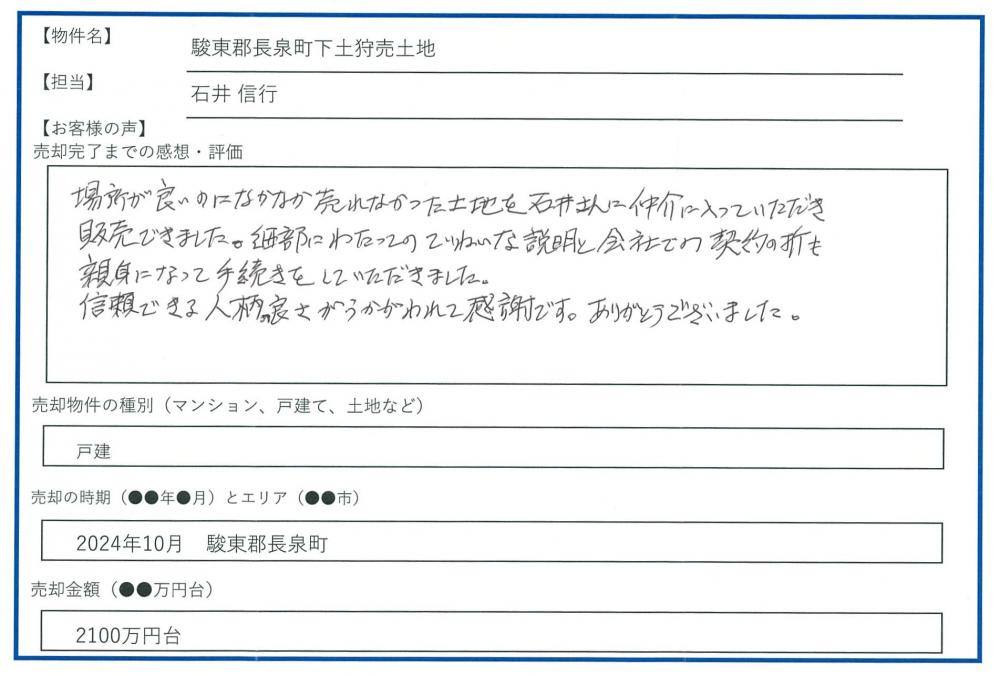 【物件名】
駿東郡長泉町下土狩売土地
【担当】
石井 信行
【お客様の声】
売却完了までの感想・評価
場所が良いのになかなか売れなかった土地を石井さんに仲介に入っていただき
販売できました。細部にわたってのていねいな説明と会社での契約の折も
親身になって手続きをしていただきました。
信頼できる人柄の良さがうかがわれて感謝です。ありがとうございました。
売却物件の種別（マンション、戸建て、土地など）
戸建
売却の時期（●●年●月）とエリア（●●市）
2024年10月　駿東郡長泉町
売却金額（●●万円台）
2100万円台